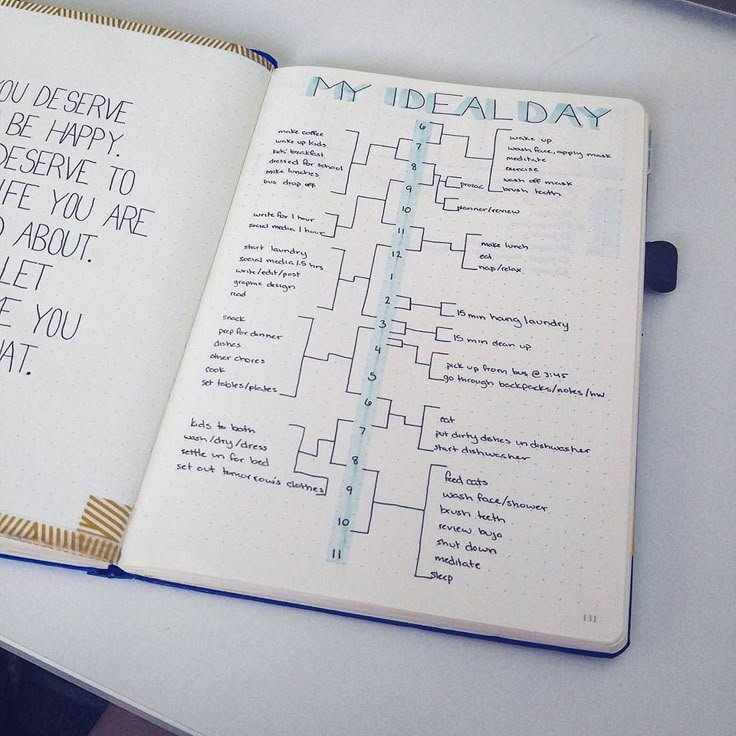 OU DESERVE
BE HAPPY.
DESERVE TO
IFE YOU ARE
ABOUT.
LET
E YOU
AT.
MY IDEAL DAY
make coffee
wake up kids
kids' breakfast
dressed for school
make lunches
bus drop off
write for 1 hour
social media 1 hour
start laundry
social media 1.5 hrs
write/edit/post
graphic design
read
snack
prep for dinner
dishes
other chores
cook
set tables/plates
kids to bath
wash/dry/dress
settle in for bed
set out tomorrow's clothes
6
7
8
9
10
11
12
1
2
3
4
5
6
7
8
9
10
11
wake up
wash face, apply mask
meditate
exercise
wash off mask
brush teeth
prosac
planner/review
make lunch
eat
nap/relax
15 min hang laundry
15 min clean up
pick up from bus @ 3:45
go through backpacks/notes/hw
eat
put dirty dishes in dishwasher
start dishwasher
feed cats
wash face/shower
brush teeth
review bujo
shut down
meditate
sleep
131